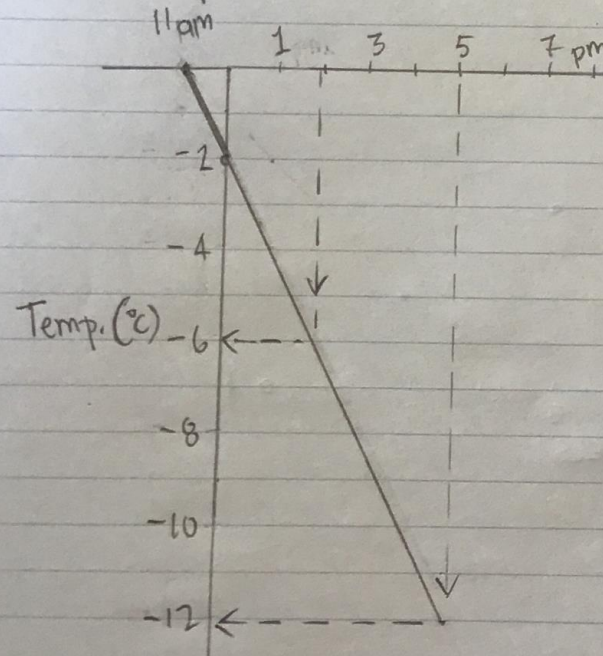 11am
1 3 5 7 pm
-2
-4
Temp. (°C) -6
-8
-10
-12